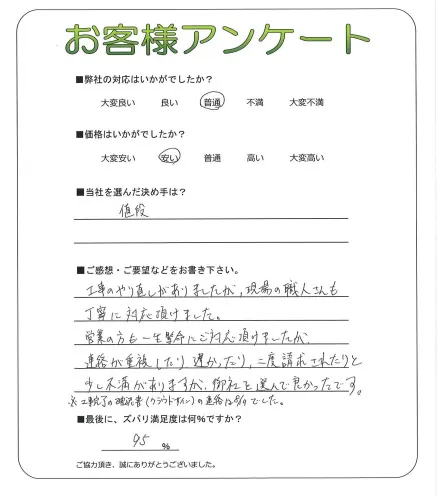 お客様アンケート
■弊社の対応はいかがでしたか?
大変良い 良い 普通 不満 大変不満
■価格はいかがでしたか?
大変安い 安い 普通 高い 大変高い
■当社を選んだ決め手は?
値段
■ご感想・ご要望などをお書き下さい。
工事のやり直しがありましたが、現場の職人さんも
丁寧に対応頂けました。
営業の方も一生懸命にご対応頂けましたが、
連絡が重複したり遅かったり、二度請求されたりと
少し不満がありますが、御社を選んで良かったです。
※工事完了の確認書(クラウドサイン)の連絡は8/9でした。
■最後に、ズバリ満足度は何%ですか?
95 %
ご協力頂き、誠にありがとうございました。